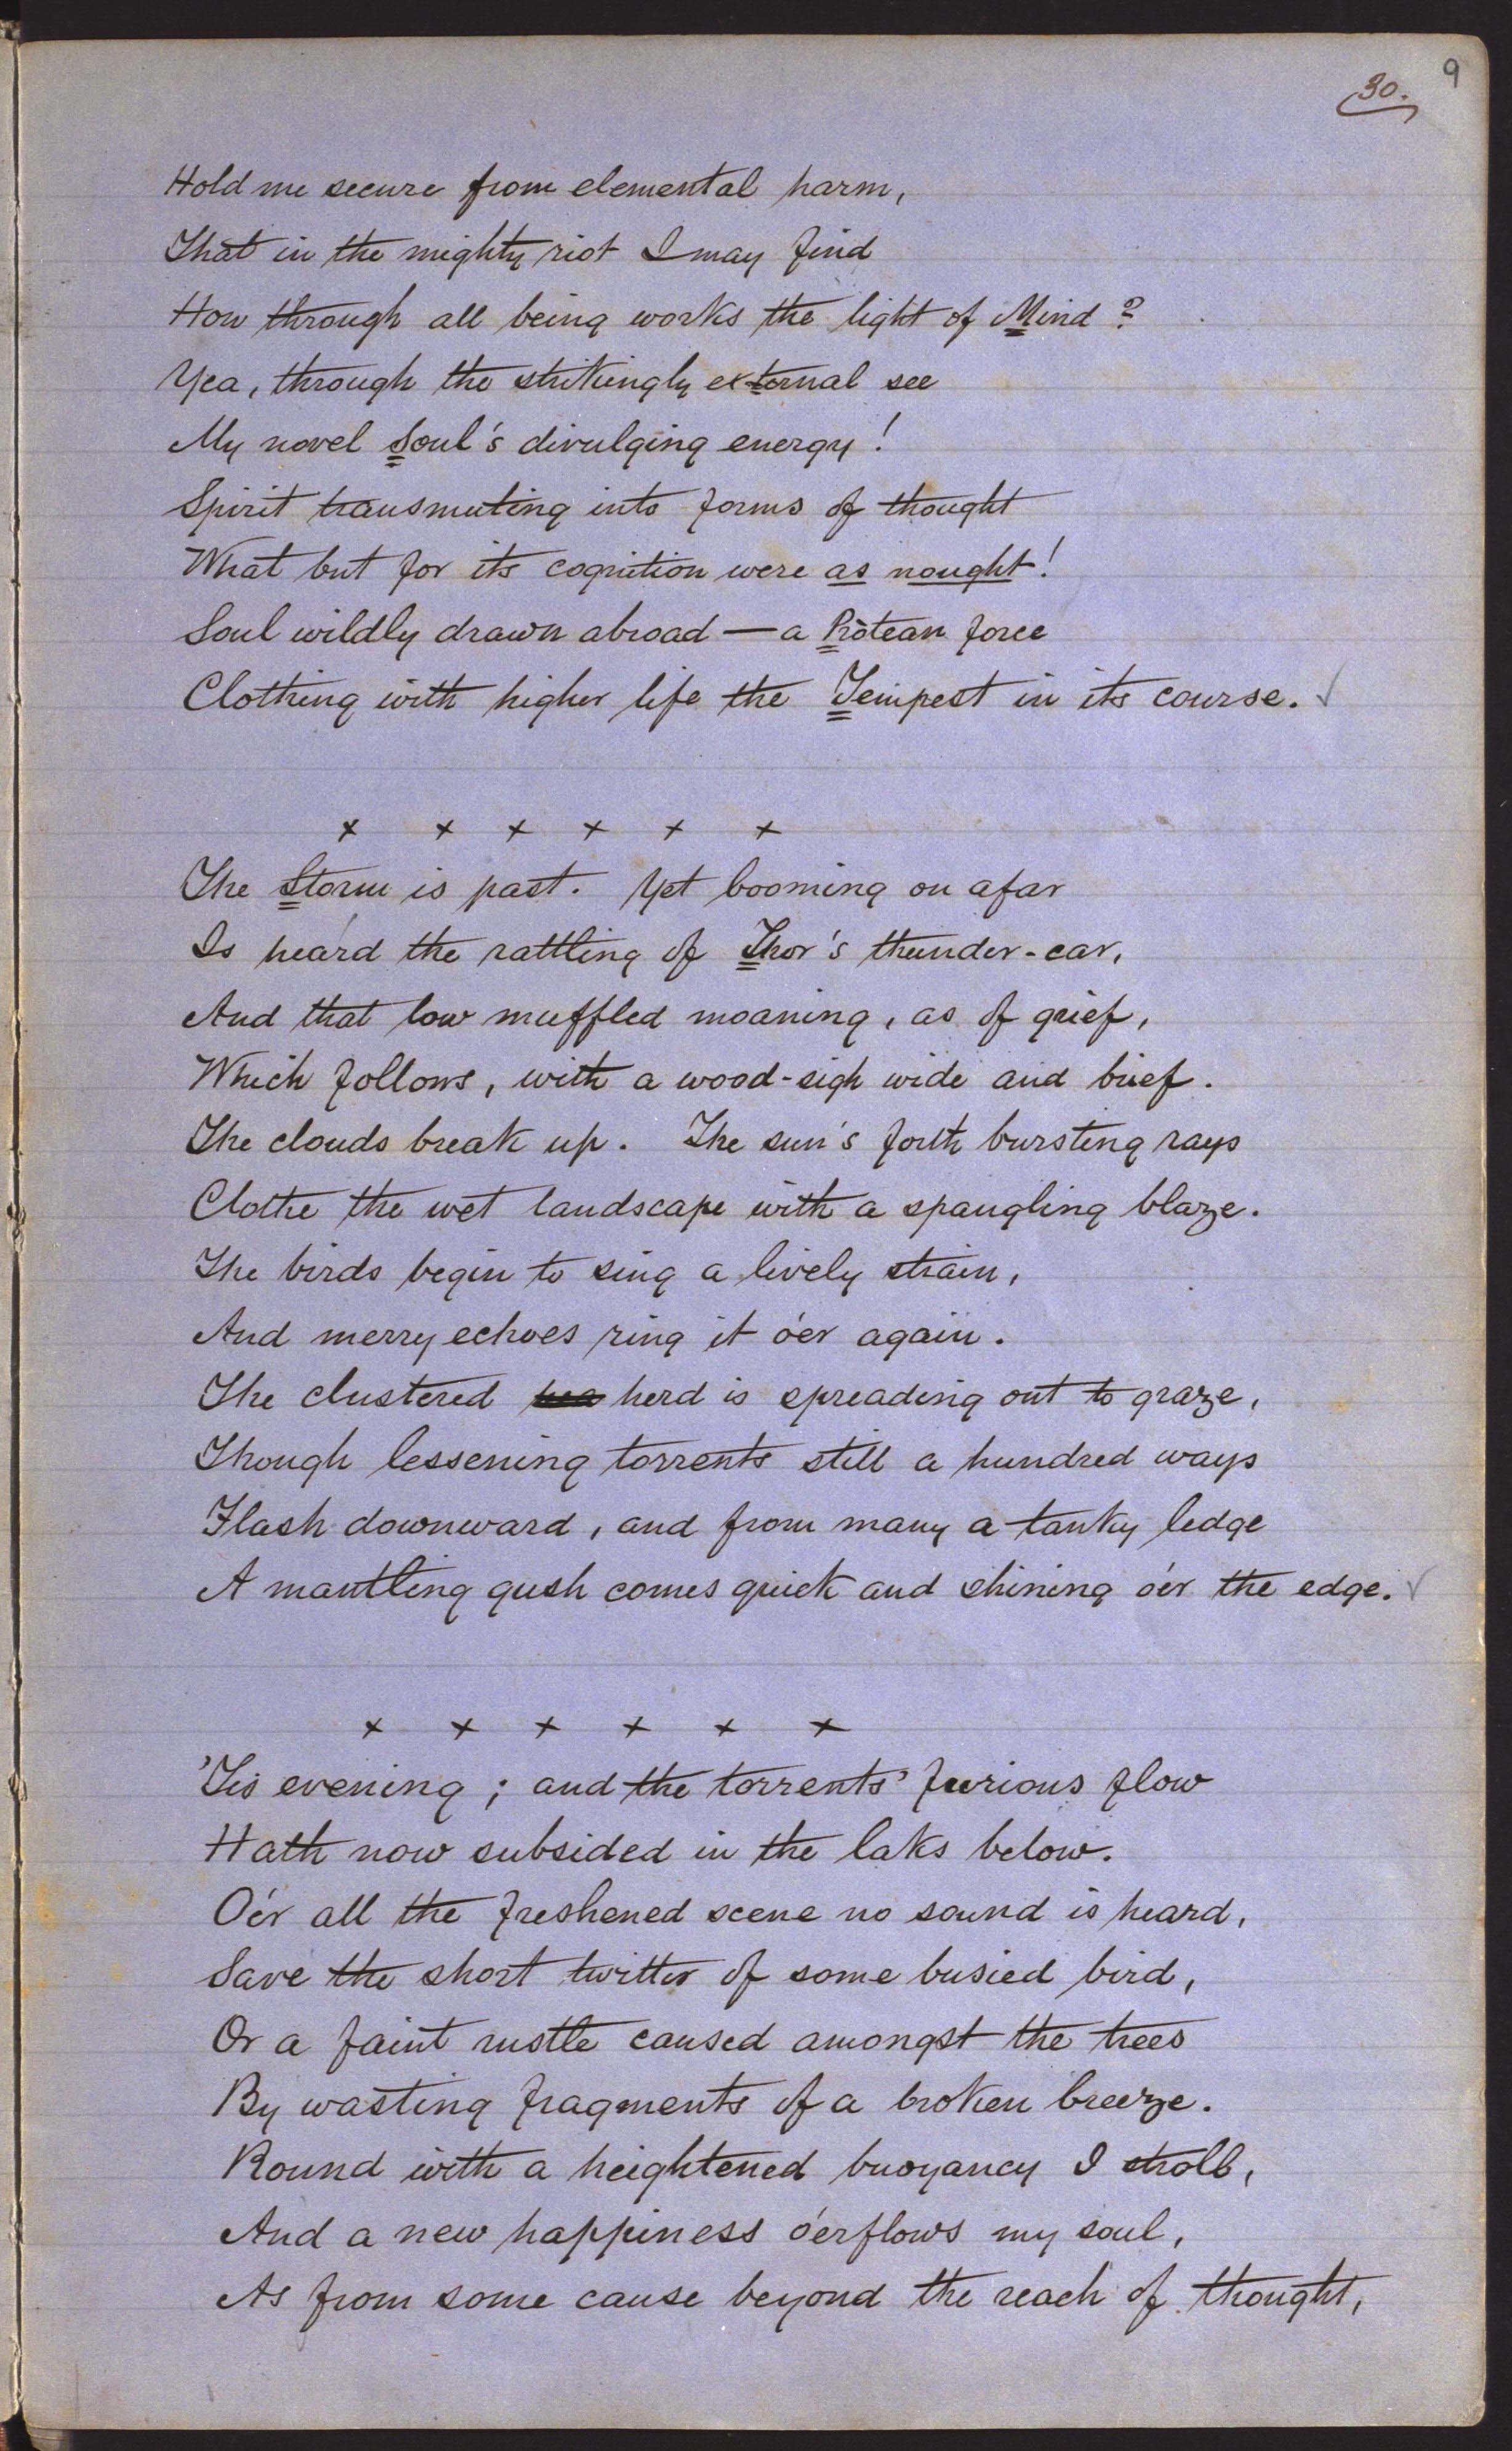 30.
9
Hold me secure from elemental harm,
That in the mighty riot I may find
How through all being works the light of Mind?
Yea, through the strikingly external see
My novel Soul's divulging energy!
Spirit transmuting into forms of thought
What but for its cognition were as nought!
Soul wildly drawn abroad — a Protean force
Clothing with higher life the Tempest in its course. ✓
x x x x x x
The Storm is past. Yet booming on afar
Is heard the rattling of Thor's thunder-car,
And that low muffled moaning, as of grief,
Which follows, with a wood-sigh wide and brief.
The clouds break up. The sun's forth bursting rays
Clothe the wet landscape with a spangling blaze.
The birds begin to sing a lively strain,
And merry echoes ring it o'er again.
The clustered herd is spreading out to graze,
Though lessening torrents still a hundred ways
Flash downward, and from many a tanky ledge
A mantling gush comes quick and shining o'er the edge. ✓
x x x x x x
'Tis evening; and the torrents' furious flow
Hath now subsided in the laks below.
O'er all the freshened scene no sound is heard,
Save the short twitter of some busied bird,
Or a faint rustle caused amongst the trees
By wasting fragments of a broken breeze.
Round with a heightened buoyancy I stroll,
And a new happiness o'erflows my soul,
As from some cause beyond the reach of thought,